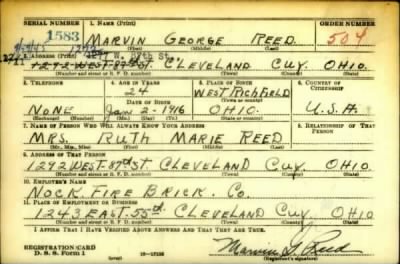 SERIAL NUMBER 1. NAME (Print) ORDER NUMBER (Print)
1583 MARVIN GEORGE REED 504
(First) (Middle) (Last)
2. ADDRESS (Print)
1292 WEST 87th ST. CLEVELAND CUY. OHIO.
(Number and street or R. F. D. number) (Town) (County) (State)
3. TELEPHONE 4. AGE IN YEARS 5. PLACE OF BIRTH 6. COUNTRY OF CITIZENSHIP
24 WEST RICHFIELD
(Town or county)
NONE DATE OF BIRTH
JAN 2 - 1916 OHIO. U.S.A.
(Exchange) (Number) (Mo.) (Day) (Yr.) (State or country)
7. NAME OF PERSON WHO WILL ALWAYS KNOW YOUR ADDRESS 8. RELATIONSHIP OF THAT PERSON
MRS. RUTH MARIE REED
(Mr., Mrs., Miss) (First) (Middle) (Last)
9. ADDRESS OF THAT PERSON
1292 WEST 87th ST CLEVELAND CUY. OHIO
(Number and street or R. F. D. number) (Town) (County) (State)
10. EMPLOYER'S NAME
NOCK. FIRE BRICK. CO.
11. PLACE OF EMPLOYMENT OR BUSINESS
1243 EAST-55th. CLEVELAND CUY. OHIO
(Number and street or R. F. D. number) (Town) (County) (State)
I AFFIRM THAT I HAVE VERIFIED ABOVE ANSWERS AND THAT THEY ARE TRUE.
REGISTRATION CARD
D. S. S. Form 1 16-17105 Marvin G. Reed
(Registrant's signature)